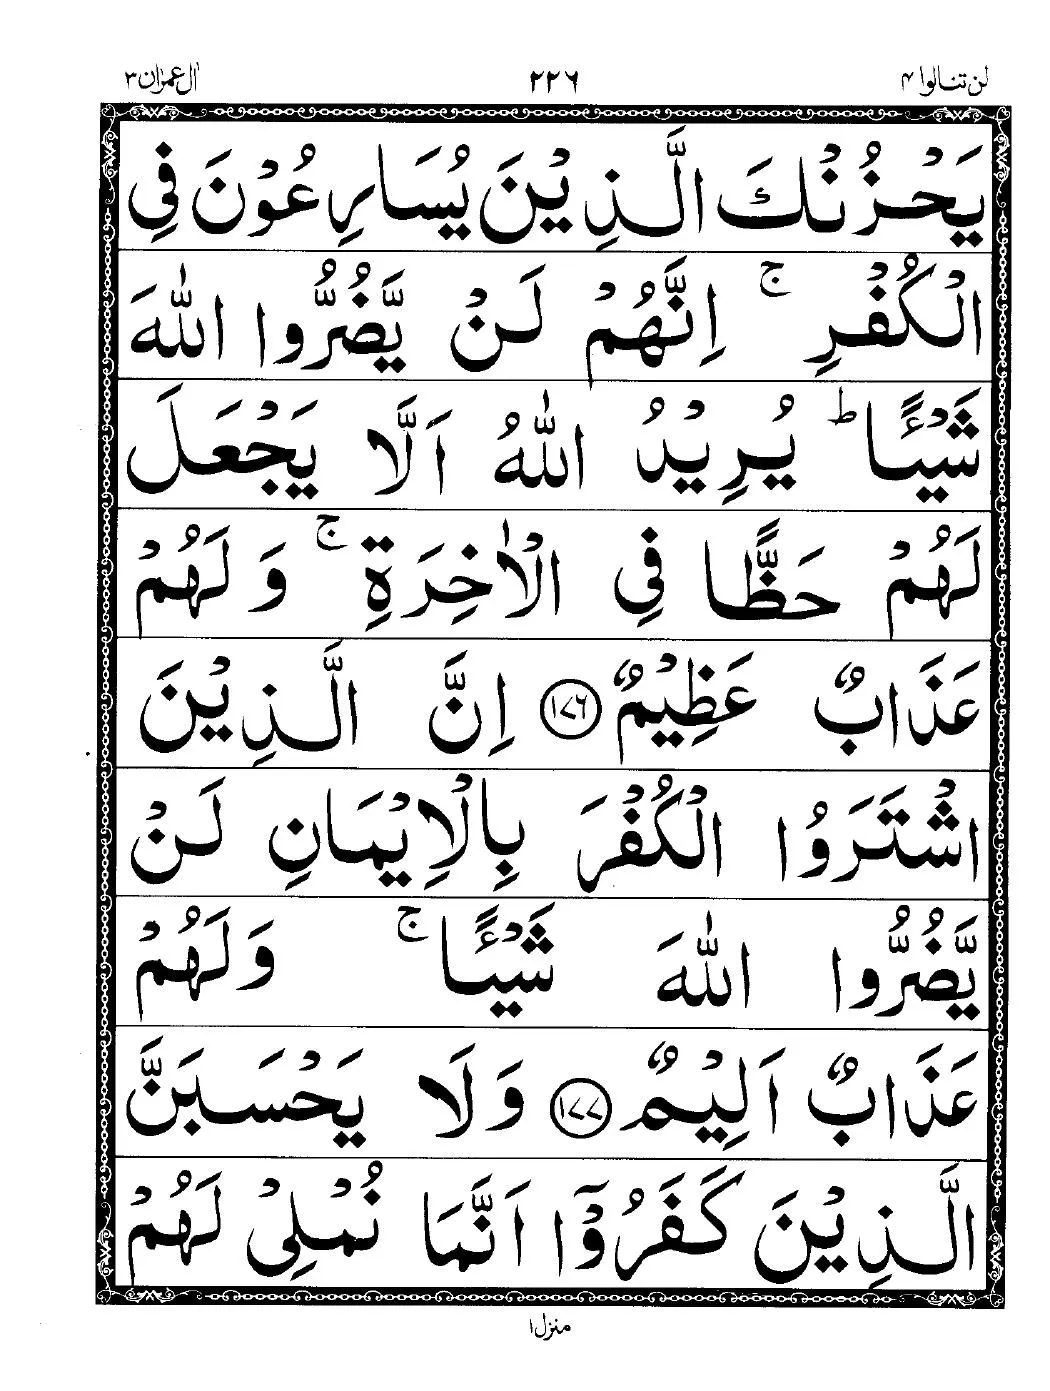 لن تنالوا ۴
۲۲۶
اٰل عمرٰن ۳
يَحْزُنْكَ الَّذِيْنَ يُسَارِعُوْنَ فِي
الْكُفْرِ ۚ اِنَّهُمْ لَنْ يَّضُرُّوا اللّٰهَ
شَيْـًٔا ؕ يُرِيْدُ اللّٰهُ اَلَّا يَجْعَلَ
لَهُمْ حَظًّا فِي الْاٰخِرَةِ ۚ وَ لَهُمْ
عَذَابٌ عَظِيْمٌ ۝۱۷۶ اِنَّ الَّذِيْنَ
اشْتَرَوُا الْكُفْرَ بِالْاِيْمَانِ لَنْ
يَّضُرُّوا اللّٰهَ شَيْـًٔا ۚ وَلَهُمْ
عَذَابٌ اَلِيْمٌ ۝۱۷۷ وَلَا يَحْسَبَنَّ
الَّذِيْنَ كَفَرُوْۤا اَنَّمَا نُمْلِيْ لَهُمْ
منزل ۱